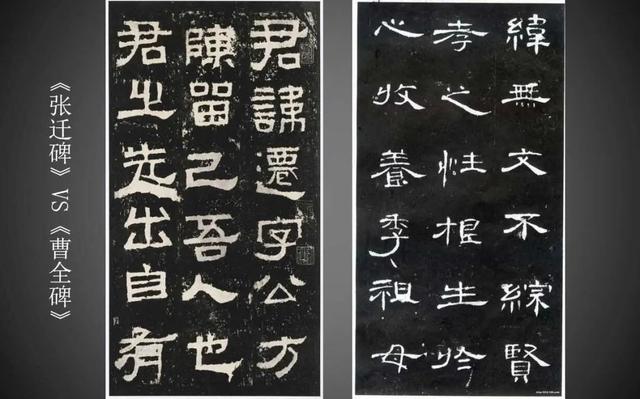 《张迁碑》VS《曹全碑》
君諱遷字公方
陳留己吾人也
君之先出自有
緯無文不綜賢
孝之性根生於
心收養季祖母